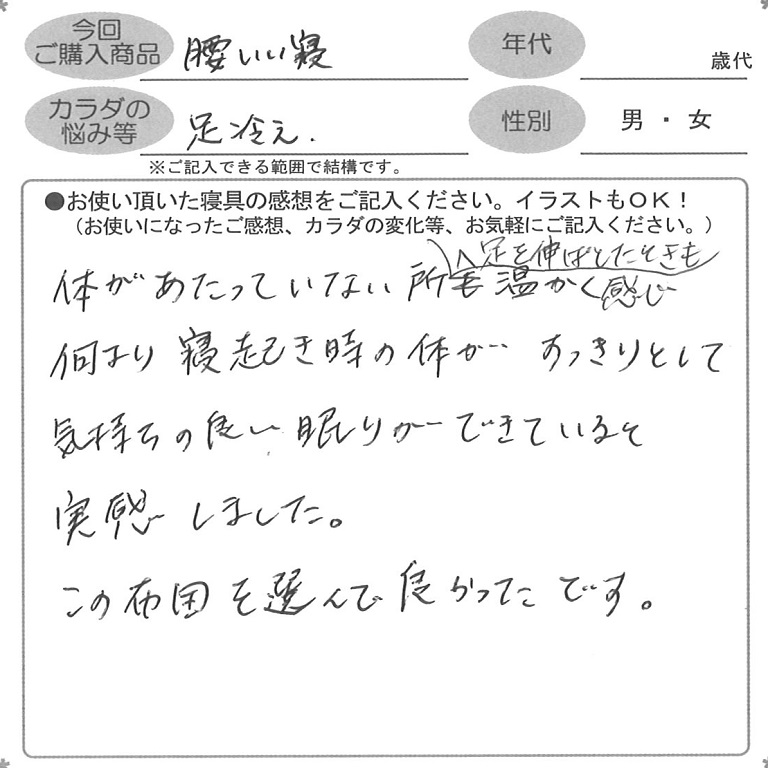 今回
ご購入商品
腰いい寝
年代
歳代
カラダの
悩み等
足冷え.
性別
男・女
※ご記入できる範囲で結構です。
●お使い頂いた寝具の感想をご記入ください。イラストもOK!
(お使いになったご感想、カラダの変化等、お気軽にご記入ください。)
足を伸ばしたときも
体があたっていない所も温かく感じ
何より寝起き時の体がすっきりとして
気持ちの良い眠りができていると
実感しました。
この布団を選んで良かったです。